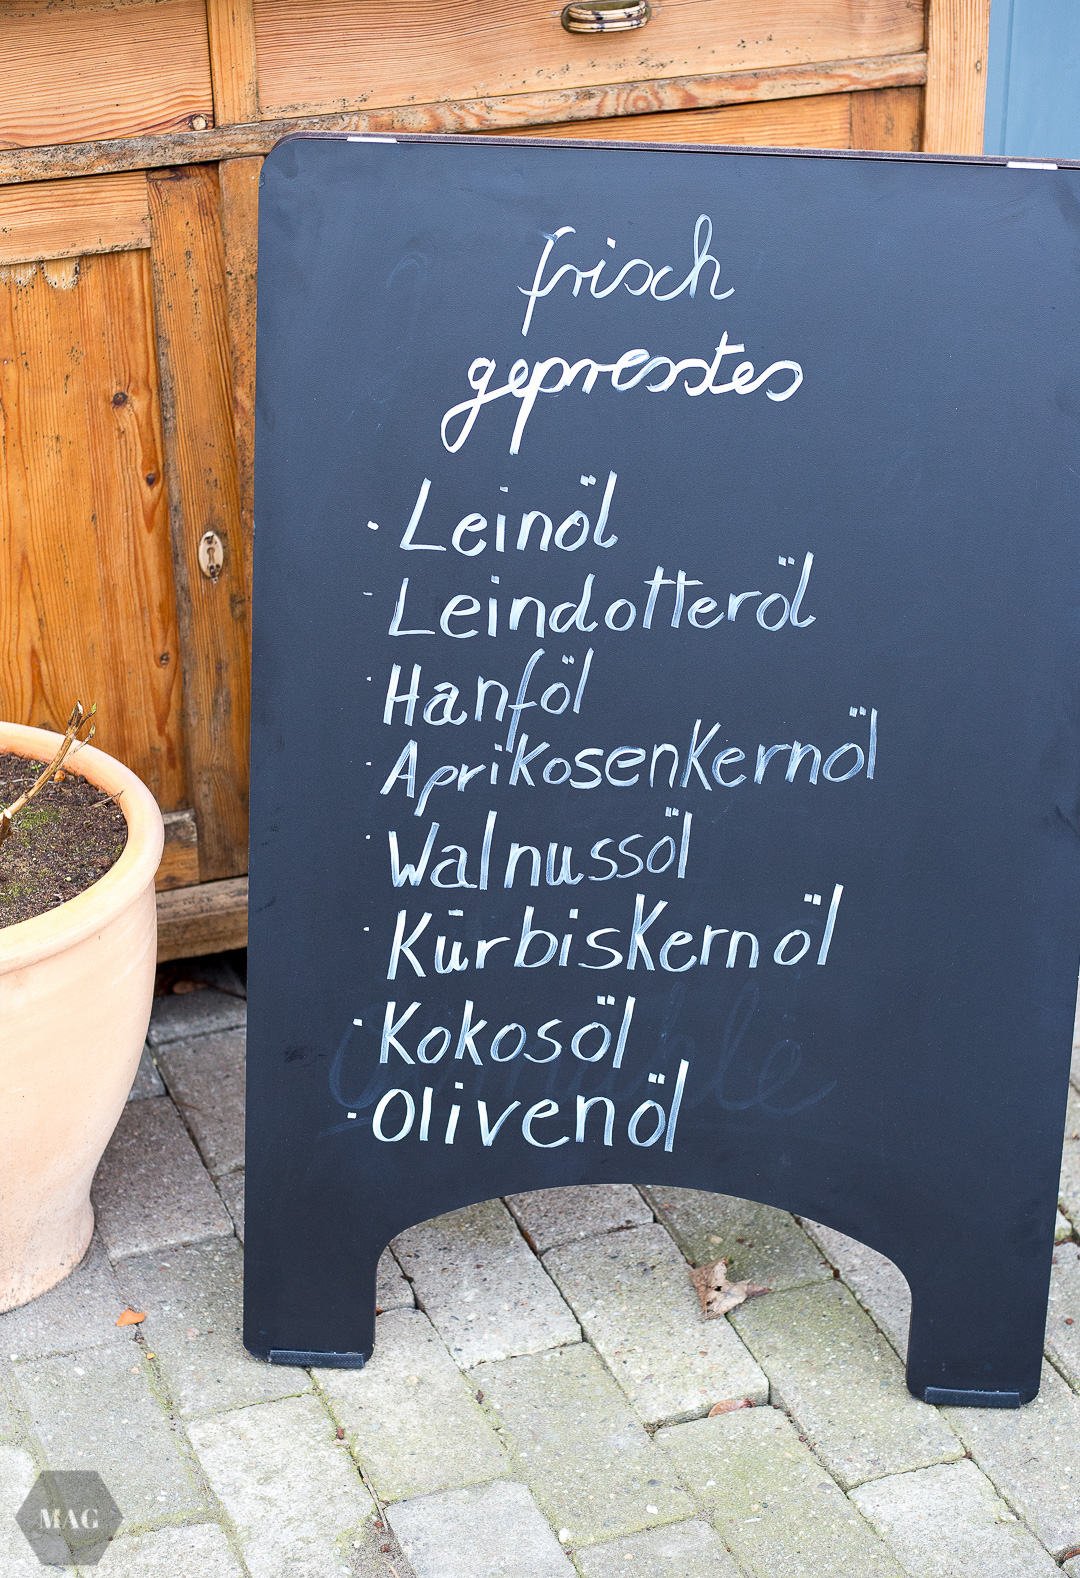 frisch
gepresstes
· Leinöl
- Leindotteröl
· Hanföl
· Aprikosenkernöl
· Walnussöl
· Kürbiskernöl
· Kokosöl
· Olivenöl
MAG